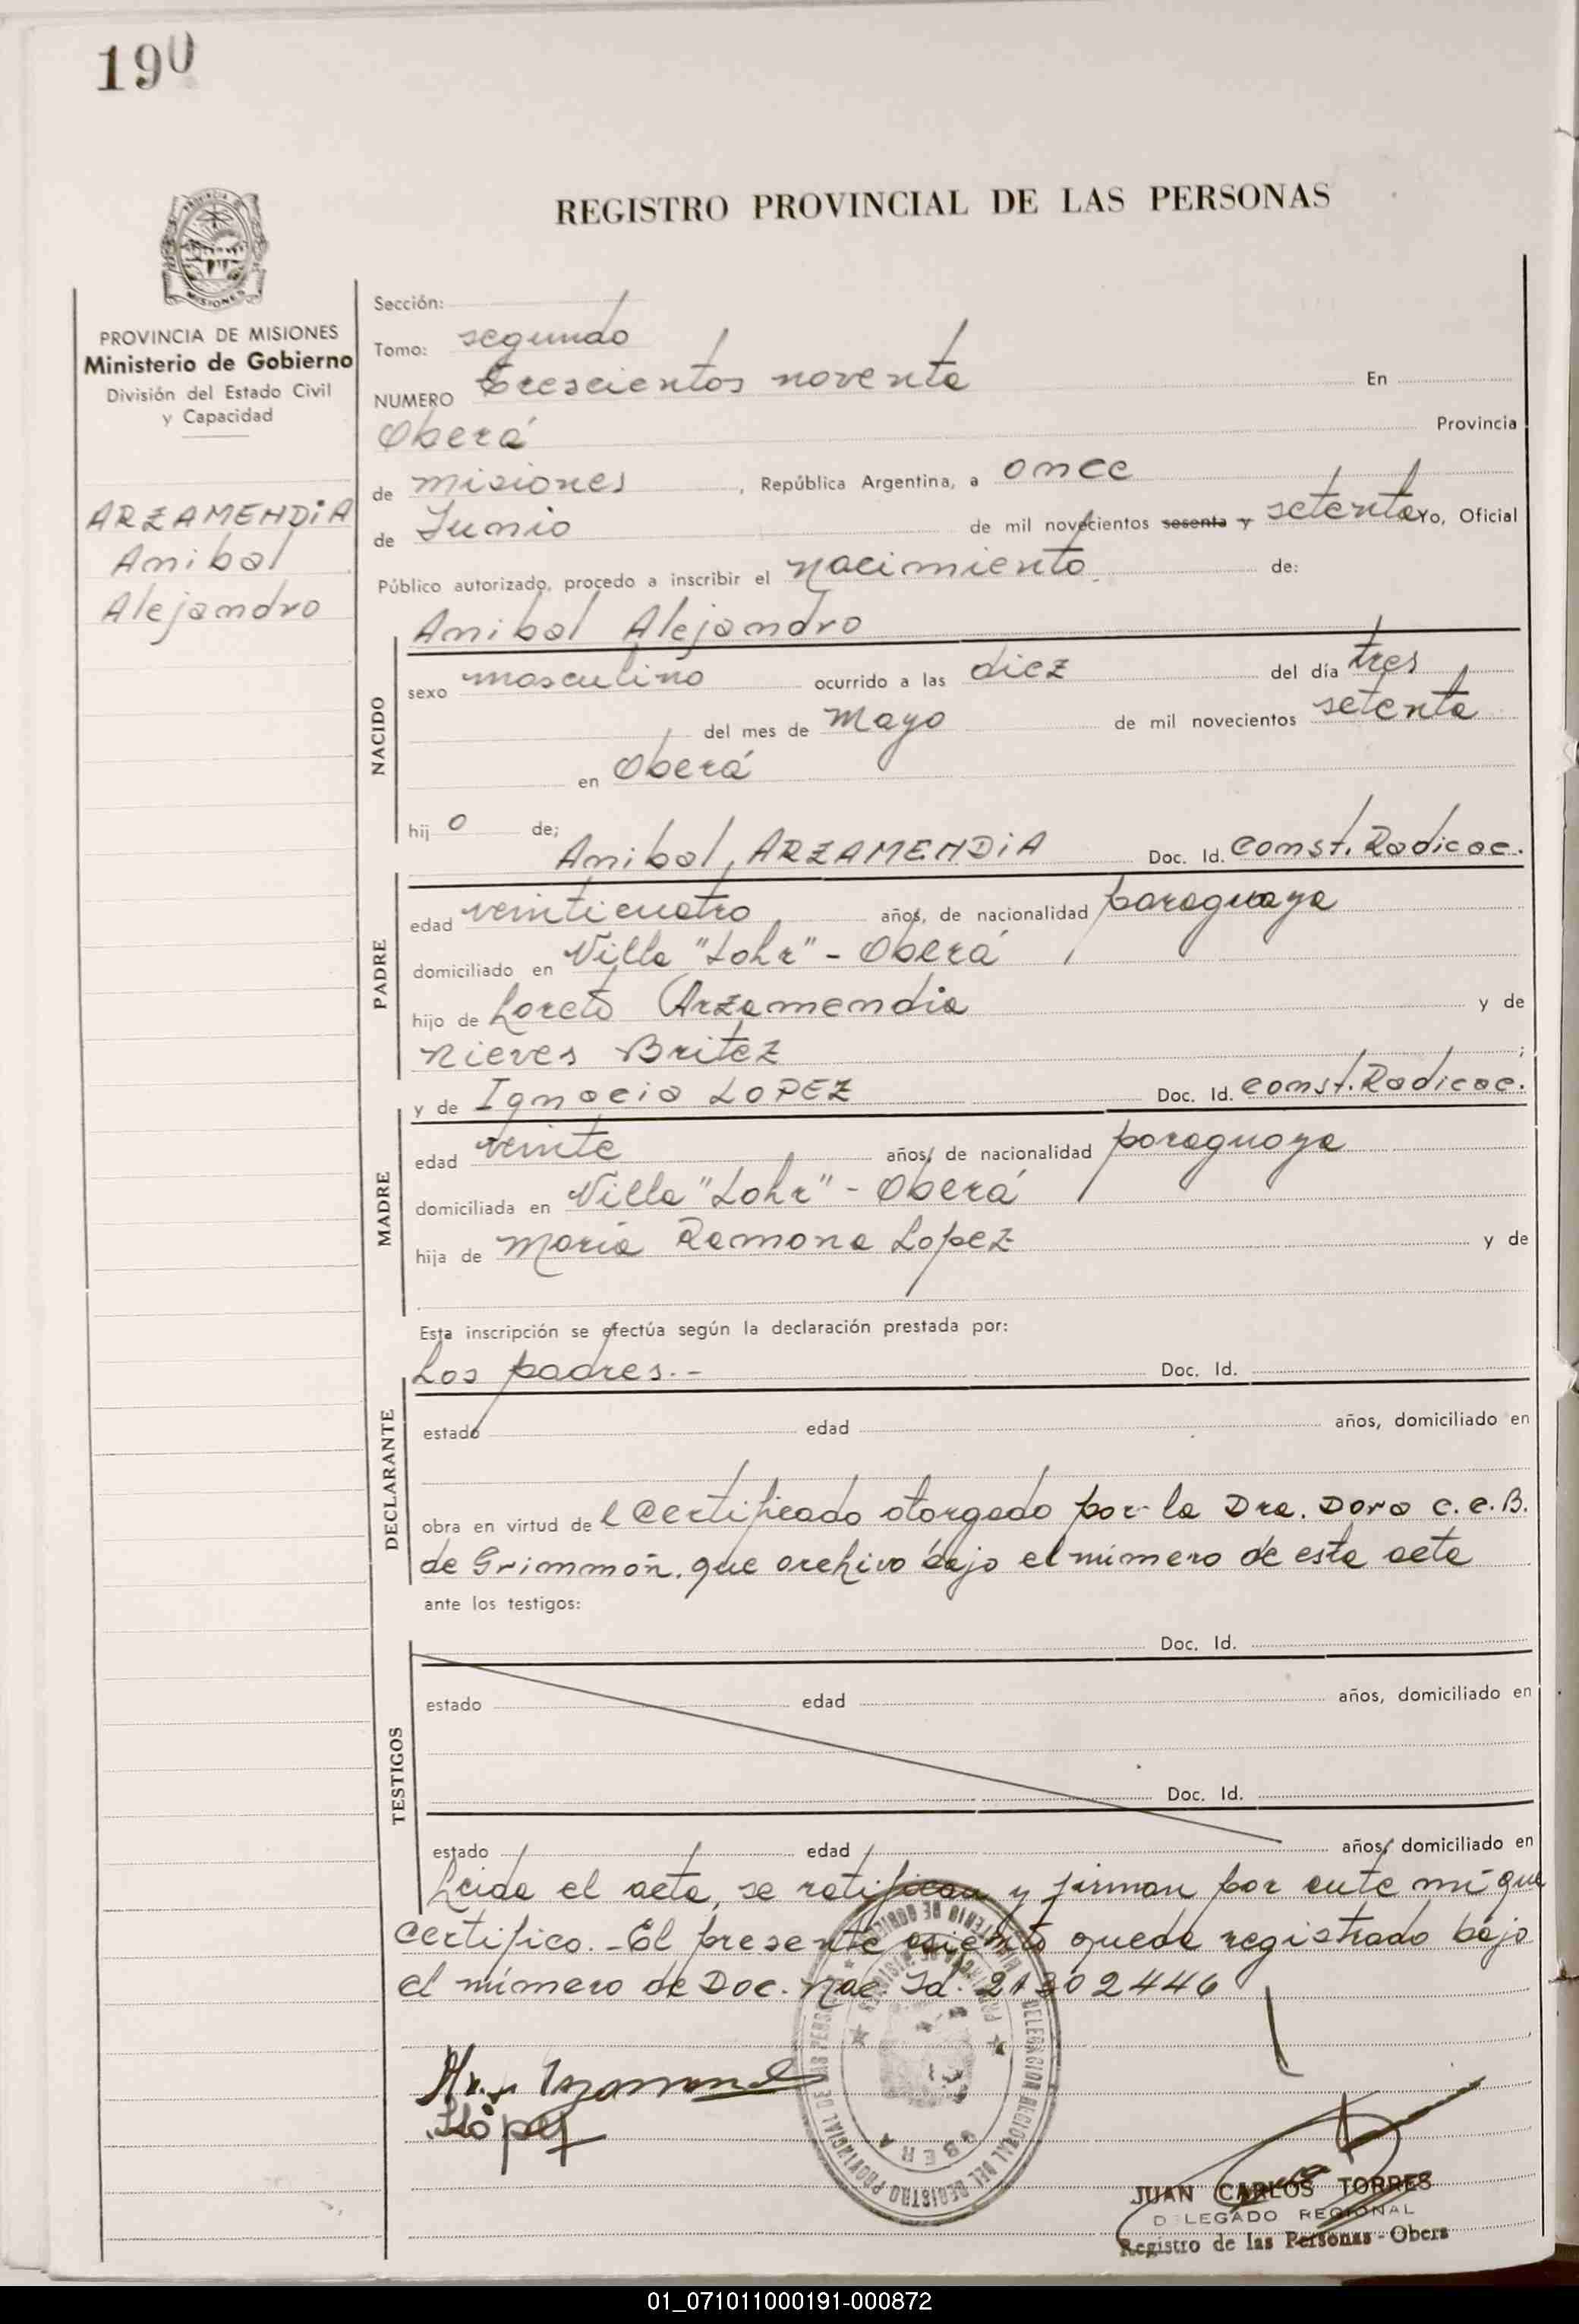 190
REGISTRO PROVINCIAL DE LAS PERSONAS
MISIONES
PROVINCIA DE MISIONES
Ministerio de Gobierno
División del Estado Civil
y Capacidad
ARZAMENDIA
Anibal
Alejandro
Sección:
Tomo: segundo
NUMERO trescientos noventa En
Oberá Provincia
de misiones, República Argentina, a once
de Junio de mil novecientos sesenta y setenta Yo, Oficial
Público autorizado, procedo a inscribir el nacimiento de:
Anibal Alejandro
NACIDO
sexo masculino ocurrido a las diez del día tres
del mes de Mayo de mil novecientos setenta
en Oberá
hijo de; Anibal ARZAMENDIA Doc. Id. Const. Radicac.
PADRE
edad veinticuatro años, de nacionalidad paraguaya
domiciliado en Villa "Lohr" - Oberá
hijo de Loreto Arzamendia y de
Nieves Britez ;
y de Ignacia LOPEZ Doc. Id. Const. Radicac.
MADRE
edad veinte años, de nacionalidad paraguaya
domiciliada en Villa "Lohr" - Oberá
hija de María Ramona Lopez y de
Esta inscripción se efectúa según la declaración prestada por:
Los padres.- Doc. Id.
DECLARANTE
estado edad años, domiciliado en
obra en virtud del certificado otorgado por la Dra. Dora C.e.B.
de Grimmon, que archivo bajo el número de esta acta
ante los testigos:
Doc. Id.
TESTIGOS
estado edad años, domiciliado en
Doc. Id.
estado edad años, domiciliado en
Leida el acta, se ratifican y firman por ante mí que
certifico.- El presente asiento queda registrado bajo
el número de Doc. Nac. Id. 21302446
López
DELEGACION REGIONAL DEL REGISTRO PROVINCIAL DE LAS PERSONAS
OBERA
JUAN CARLOS TORRES
DELEGADO REGIONAL
Registro de las Personas - Obera
01_071011000191-000872